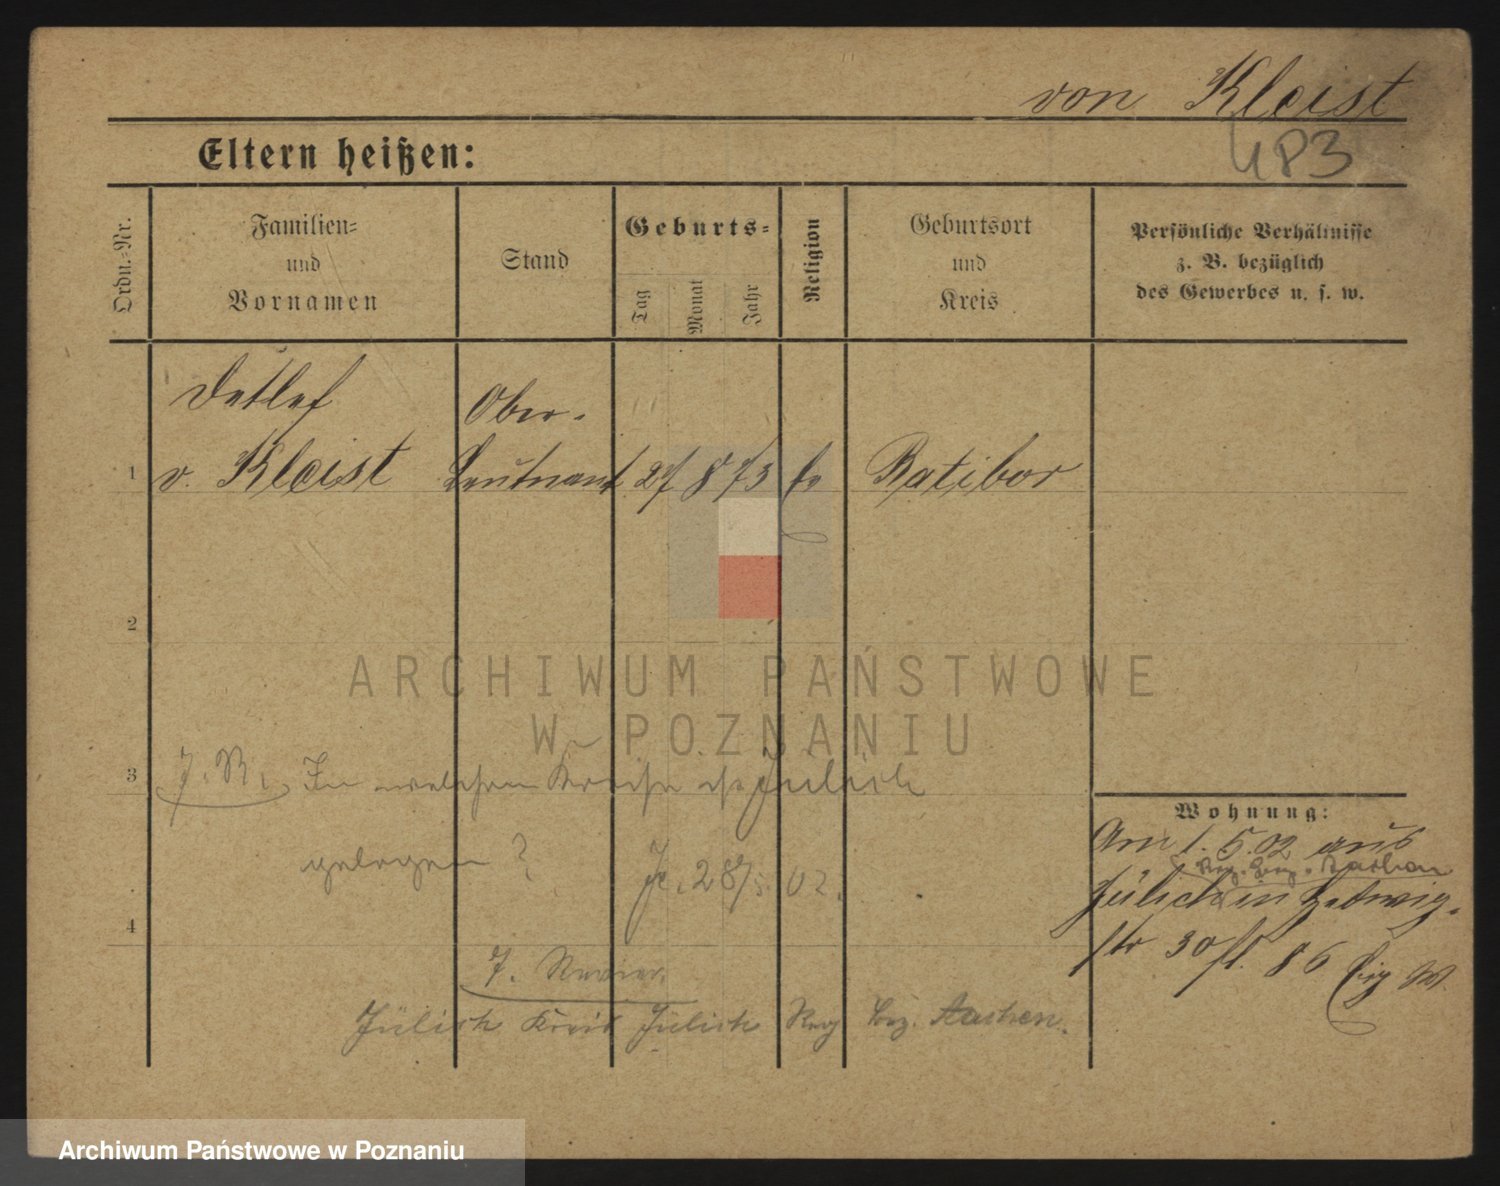 von Kleist
483
Eltern heißen:
Ordn.-Nr.
Familien-
und
Vornamen
Stand
Geburts-
Tag
Monat
Jahr
Religion
Geburtsort
und
Kreis
Persönliche Verhältnisse
z. B. bezüglich
des Gewerbes u. s. w.
Detlef
Ober-
1
v. Kleist
Leutnant
27
8
73
ev
Ratibor
2
ARCHIWUM PAŃSTWOWE
W POZNANIU
3
J. R. In welchem Kreise ist Jülich
gelegen ?
28/5. 02.
Wohnung:
Am 1. 5. 02 aus
Reg. Bez. Aachen
Jülich in Hedwig-
str 30 86
4
J. Revier
Jülich Kreis Jülich Reg Bez. Aachen.
Archiwum Państwowe w Poznaniu